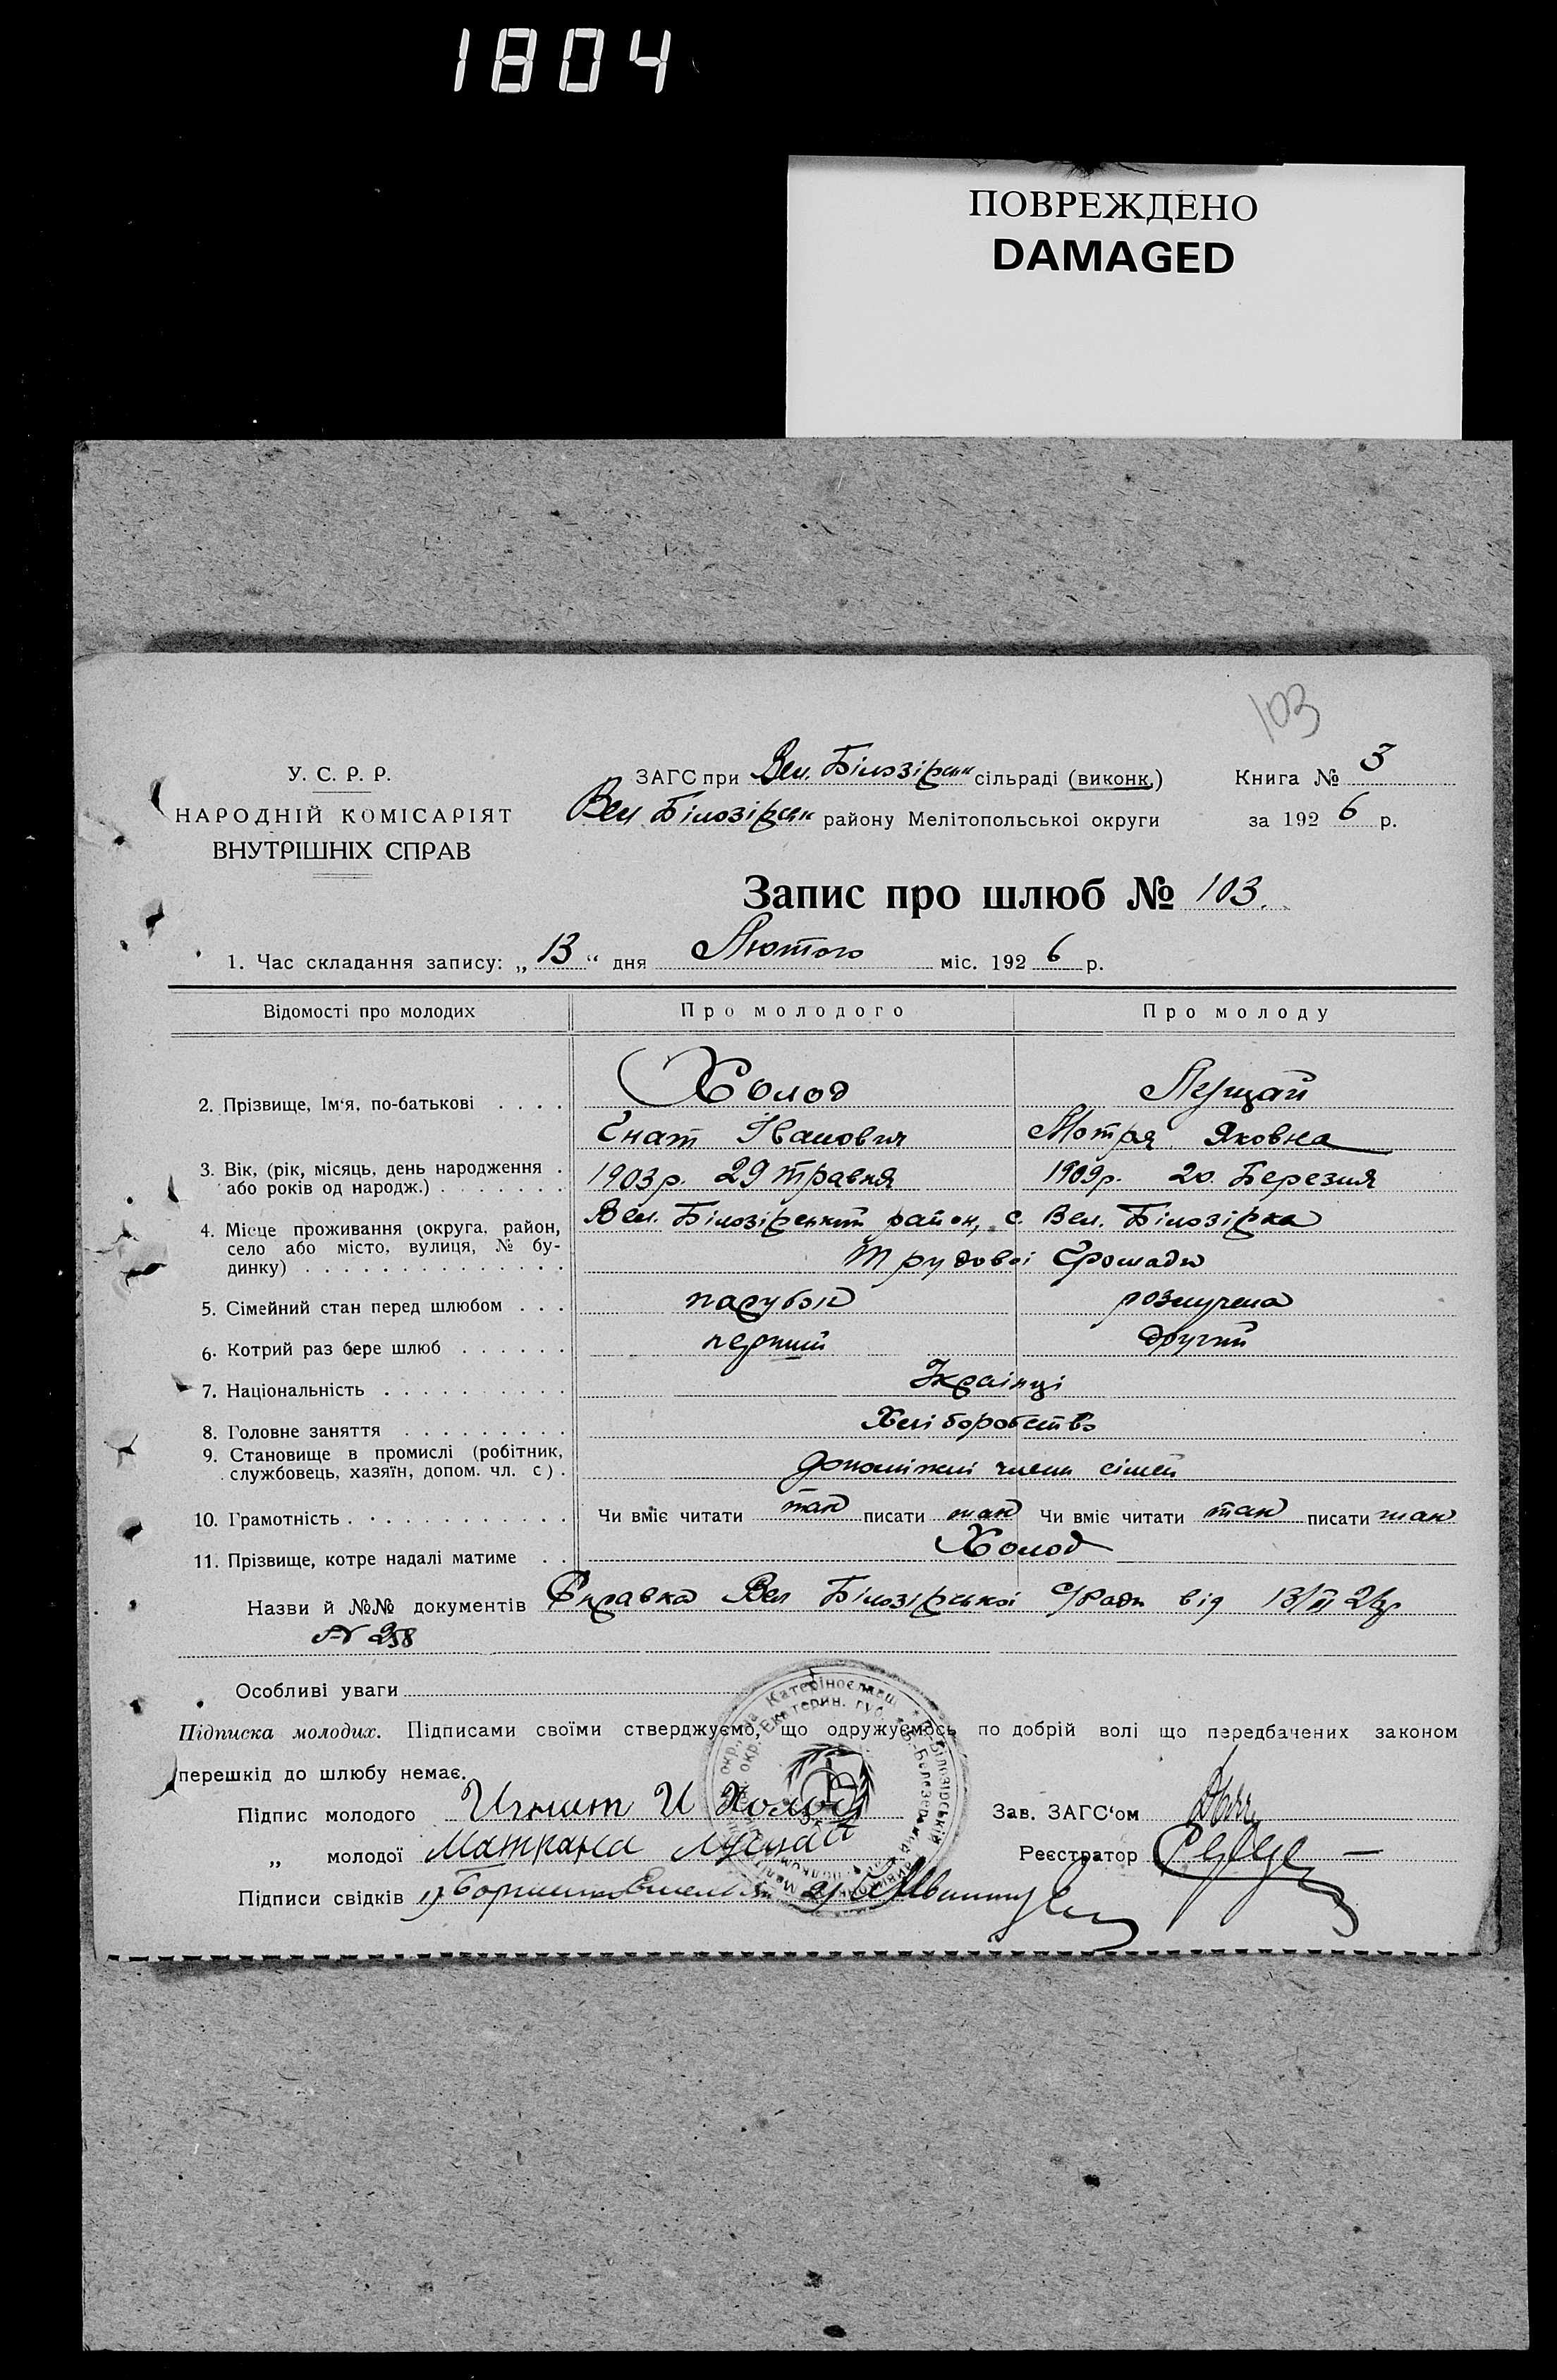 1804
ПОВРЕЖДЕНО
DAMAGED
103
У. С. Р. Р.
НАРОДНІЙ КОМІСАРІЯТ
ВНУТРІШНІХ СПРАВ
ЗАГС при Вел. Білозірськ сільраді (виконк.)
Книга № 3
Вел Білозірськ району Мелітопольської округи
за 1926 р.
Запис про шлюб № 103.
1. Час складання запису: „13“ дня Лютого міс. 1926 р.
Відомості про молодих Про молодого Про молоду
2. Прізвище, Ім‘я, по-батькові . . . . Холод
Гнат Іванович Мотря Яковна
3. Вік, (рік, місяць, день народження .
або років од народж.) . . . . . . . 1903р. 29 травня 1909р. 20. Березня
4. Місце проживання (округа, район,
село або місто, вулиця, № бу-
динку) . . . . . . . . . . . . . .
Вел. Білозірський район, с. Вел. Білозірка
Трудової Громади
5. Сімейний стан перед шлюбом . . . парубок розлучена
6. Котрий раз бере шлюб . . . . . . перший другий
7. Національність . . . . . . . . . . Українці
8. Головне заняття . . . . . . . . . Хліборобство
9. Становище в промислі (робітник,
службовець, хазяїн, допом. чл. с) . допоміжні члени сімей
10. Грамотність . . . . . . . . . . . . Чи вміє читати так писати так Чи вміє читати так писати так
11. Прізвище, котре надалі матиме . . Холод
Назви й №№ документів Справка Вел Білозірської С/Ради від 13/II 26р
№ 258
Особливі уваги
Підписка молодих. Підписами своїми стверджуємо, що одружуємось по добрій волі що передбачених законом
перешкід до шлюбу немає.
Підпис молодого Игнат И Холод
Зав. ЗАГС‘ом
„ молодої Матрена
Реєстратор
Підписи свідків 1) 2)